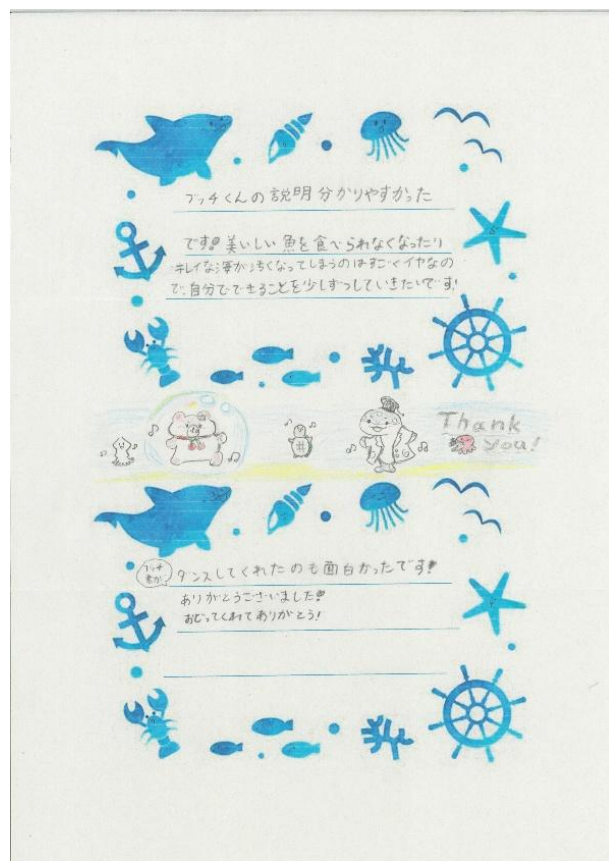 フッチくんの説明分かりやすかった
です!美いしい魚を食べられなくなったり
キレイな海が汚くなってしまうのはすごくイヤなの
で、自分でできることを少しずつしていきたいです!
Thank
you!
フッチ
君が
ダンスしてくれたのも面白かったです!
ありがとうございました!
おどってくれてありがとう!